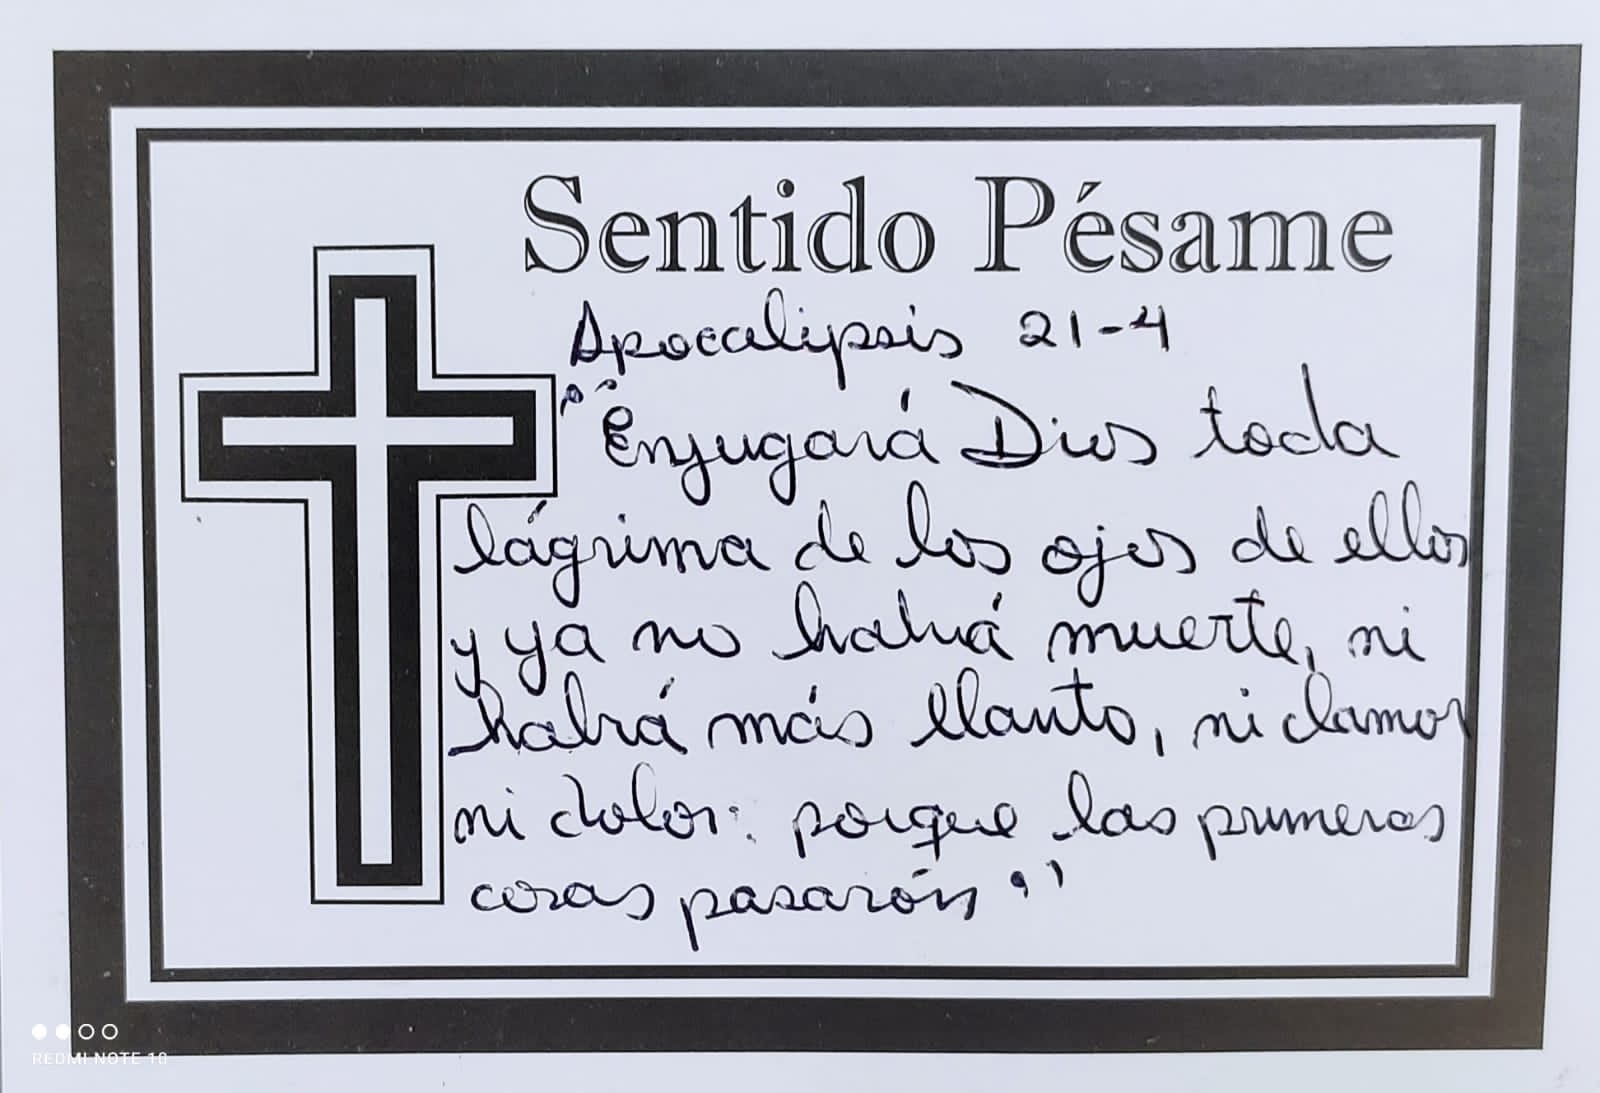 Sentido Pésame
Apocalipsis 21-4
"Enjugará Dios toda
lágrima de los ojos de ellos
y ya no habrá muerte, ni
habrá más llanto, ni clamor
ni dolor: porque las primeras
cosas pasarón"
REDMI NOTE 10